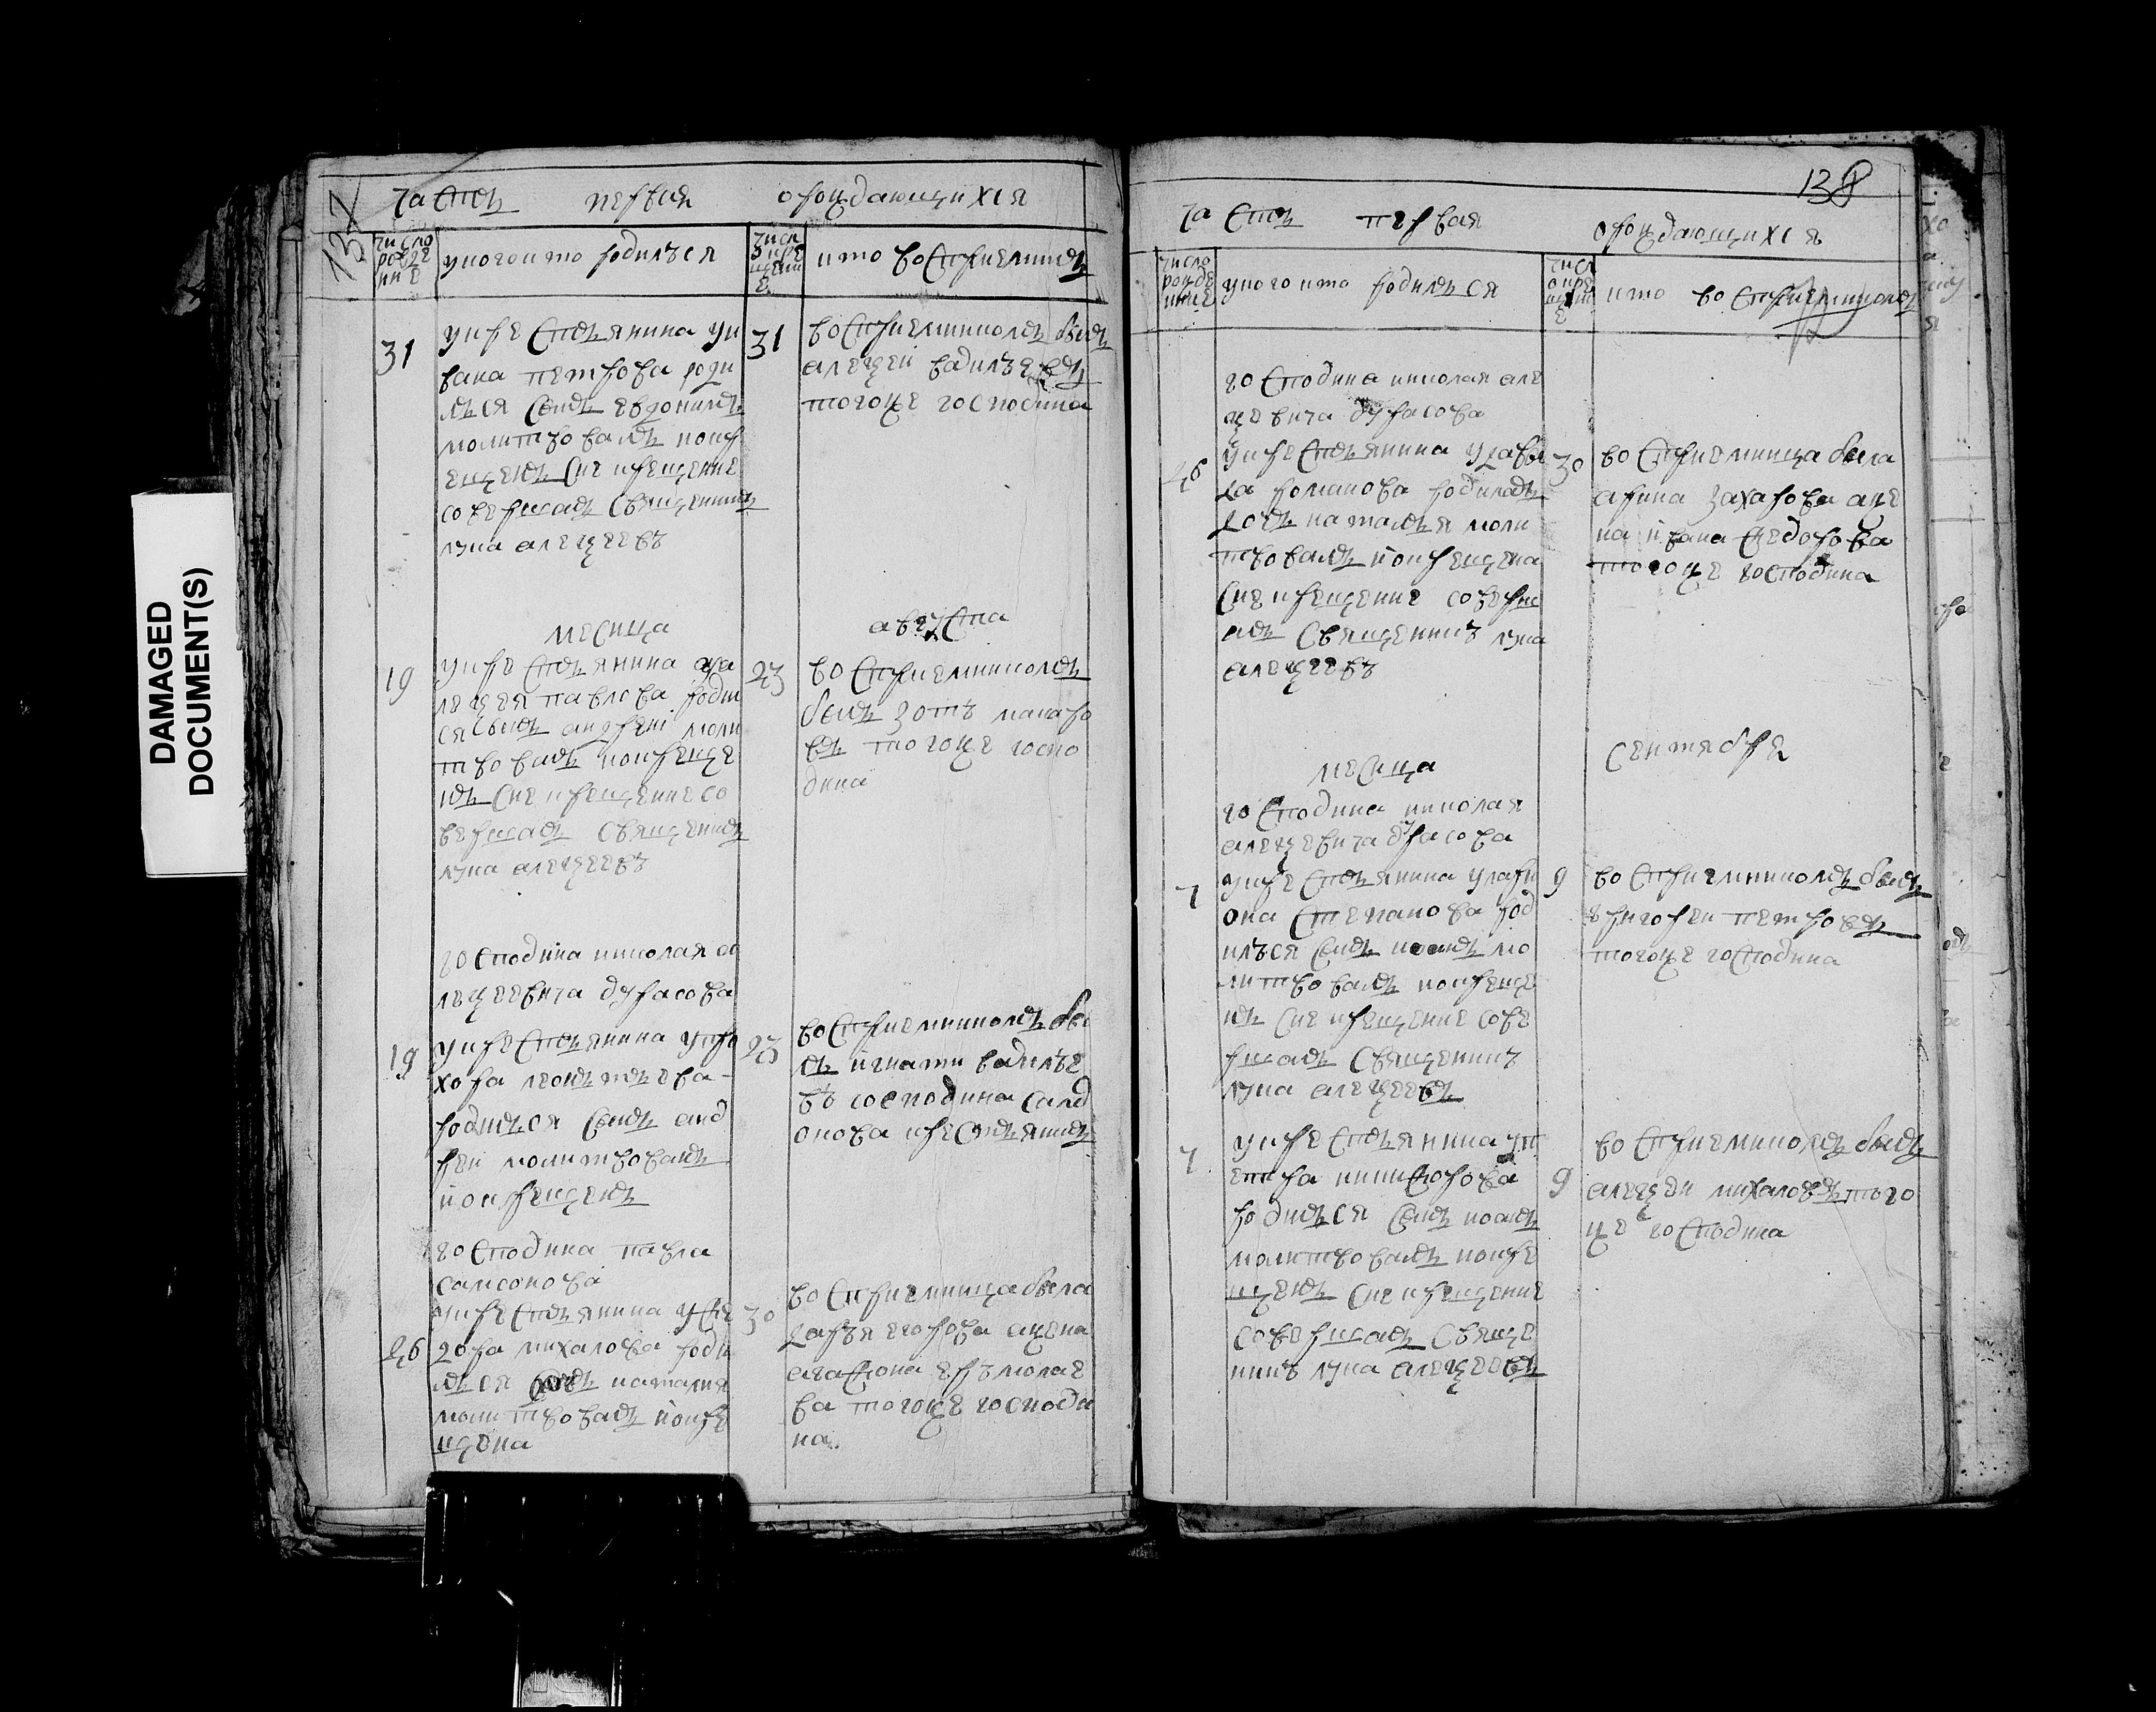 137
часть первая о рождающихся
число рожде ние
у кого кто родился
числ о кре щени е
кто восприемникъ
31
у крестьянина у и
вана петрова роди
лся сынъ евдокимъ
молитвовалъ и окр
ещенъ сие крещение
совершалъ священникъ
лука алеѯеевъ
31
восприемникомъ былъ
алеѯей вадилъевъ
тогоже господина
месица августа
19
у крестьянина у а
леѯея павлова роди
ся сынъ андреи моли
твовалъ и окреще
нъ сие крещение со
вершалъ священникъ
лука алеѯеевъ
23
восприемникомъ
былъ зотъ макаро
въ тогоже госпо
дина
господина николая а
леѯеевича дурасова
19
у крестьянина у про
хора леонтьева
родился сынъ анд
реи молитвовалъ
и окрещенъ
23
восприемникомъ бы
лъ игнати вадилъе
въ господина самс
онова крестьянинъ
господина павла
самсонова
26
у крестьянина у фе
дора михалова роди
лься дочь наталия
молитвовалъ и окре
щена
30
восприемница была
дарья егорова жена
агафона ермолае
ва тогоже господи
на
138
часть первая о рождающихся
число рожде ние
у кого кто родилься
числ о кре щени е
кто восприемникомъ
господина николая але
ѯевича дурасова
26
у крестьянина у давы
да романова родилась
дочь наталья моли
твовалъ и окрещена
сие крещение соверш
алъ священникъ лука
алеѯеевъ
30
восприемница была
арина захарова жe
на ивана федорова
тогоже господина
месица сентября
господина николая
алеѯевича дурасова
7
у крестьянина у лари
она степанова род
ился сынъ иоанъ мо
литвовалъ и окреще
нъ сие крещение сове
ршалъ священникъ
лука алеѯеевъ
9
восприемникомъ былъ
григореи петровъ
тогоже господина
7
у крестьянина у п
етра никифорова
родилься сынъ иоанъ
молитвовалъ и окре
щенъ сие крещение
совершалъ свяще
никъ лука алеѯеевъ
9
восприемникомъ былъ
алеѯеи михаловъ того
же господина
DAMAGED
DOCUMENT(S)